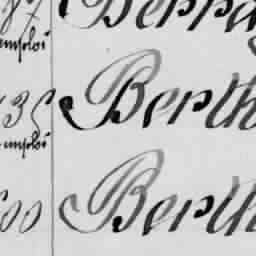 87 Beppa
emploi
35 Berth
emploi
00 Berth